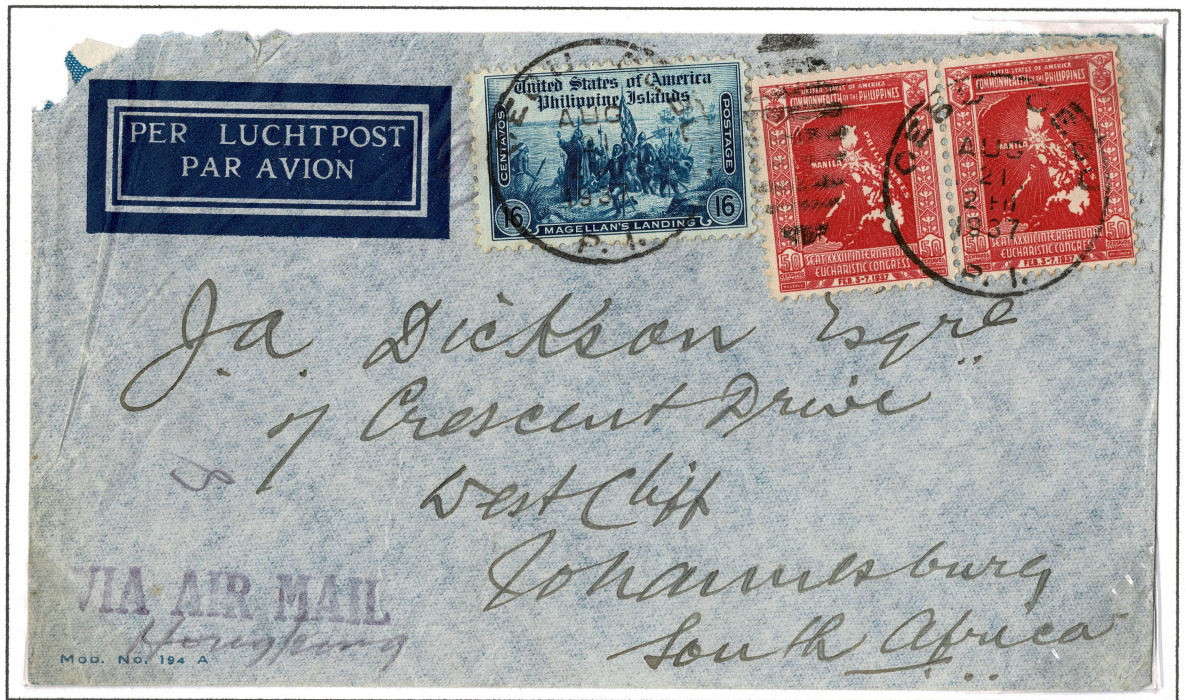 PER LUCHTPOST
PAR AVION
United States of America
Philippine Islands
CENTAVOS
POSTAGE
16 16
MAGELLAN'S LANDING
AUG
1937
P. I.
UNITED STATES OF AMERICA
COMMONWEALTH OF THE PHILIPPINES
MANILA
50 50
SEAT XXXIII INTERNATIONAL
EUCHARISTIC CONGRESS
FEB. 3-7, 1937
UNITED STATES OF AMERICA
COMMONWEALTH OF THE PHILIPPINES
MANILA
50 50
SEAT XXXIII INTERNATIONAL
EUCHARISTIC CONGRESS
FEB. 3-7, 1937
CEBU, CEBU
AUG
21
1937
P. I.
J. A. Dickson Esqre
7 Crescent Drive
West Cliff
Johannesburg
South Africa
VIA AIR MAIL
Hongkong
MOD. No. 194 A